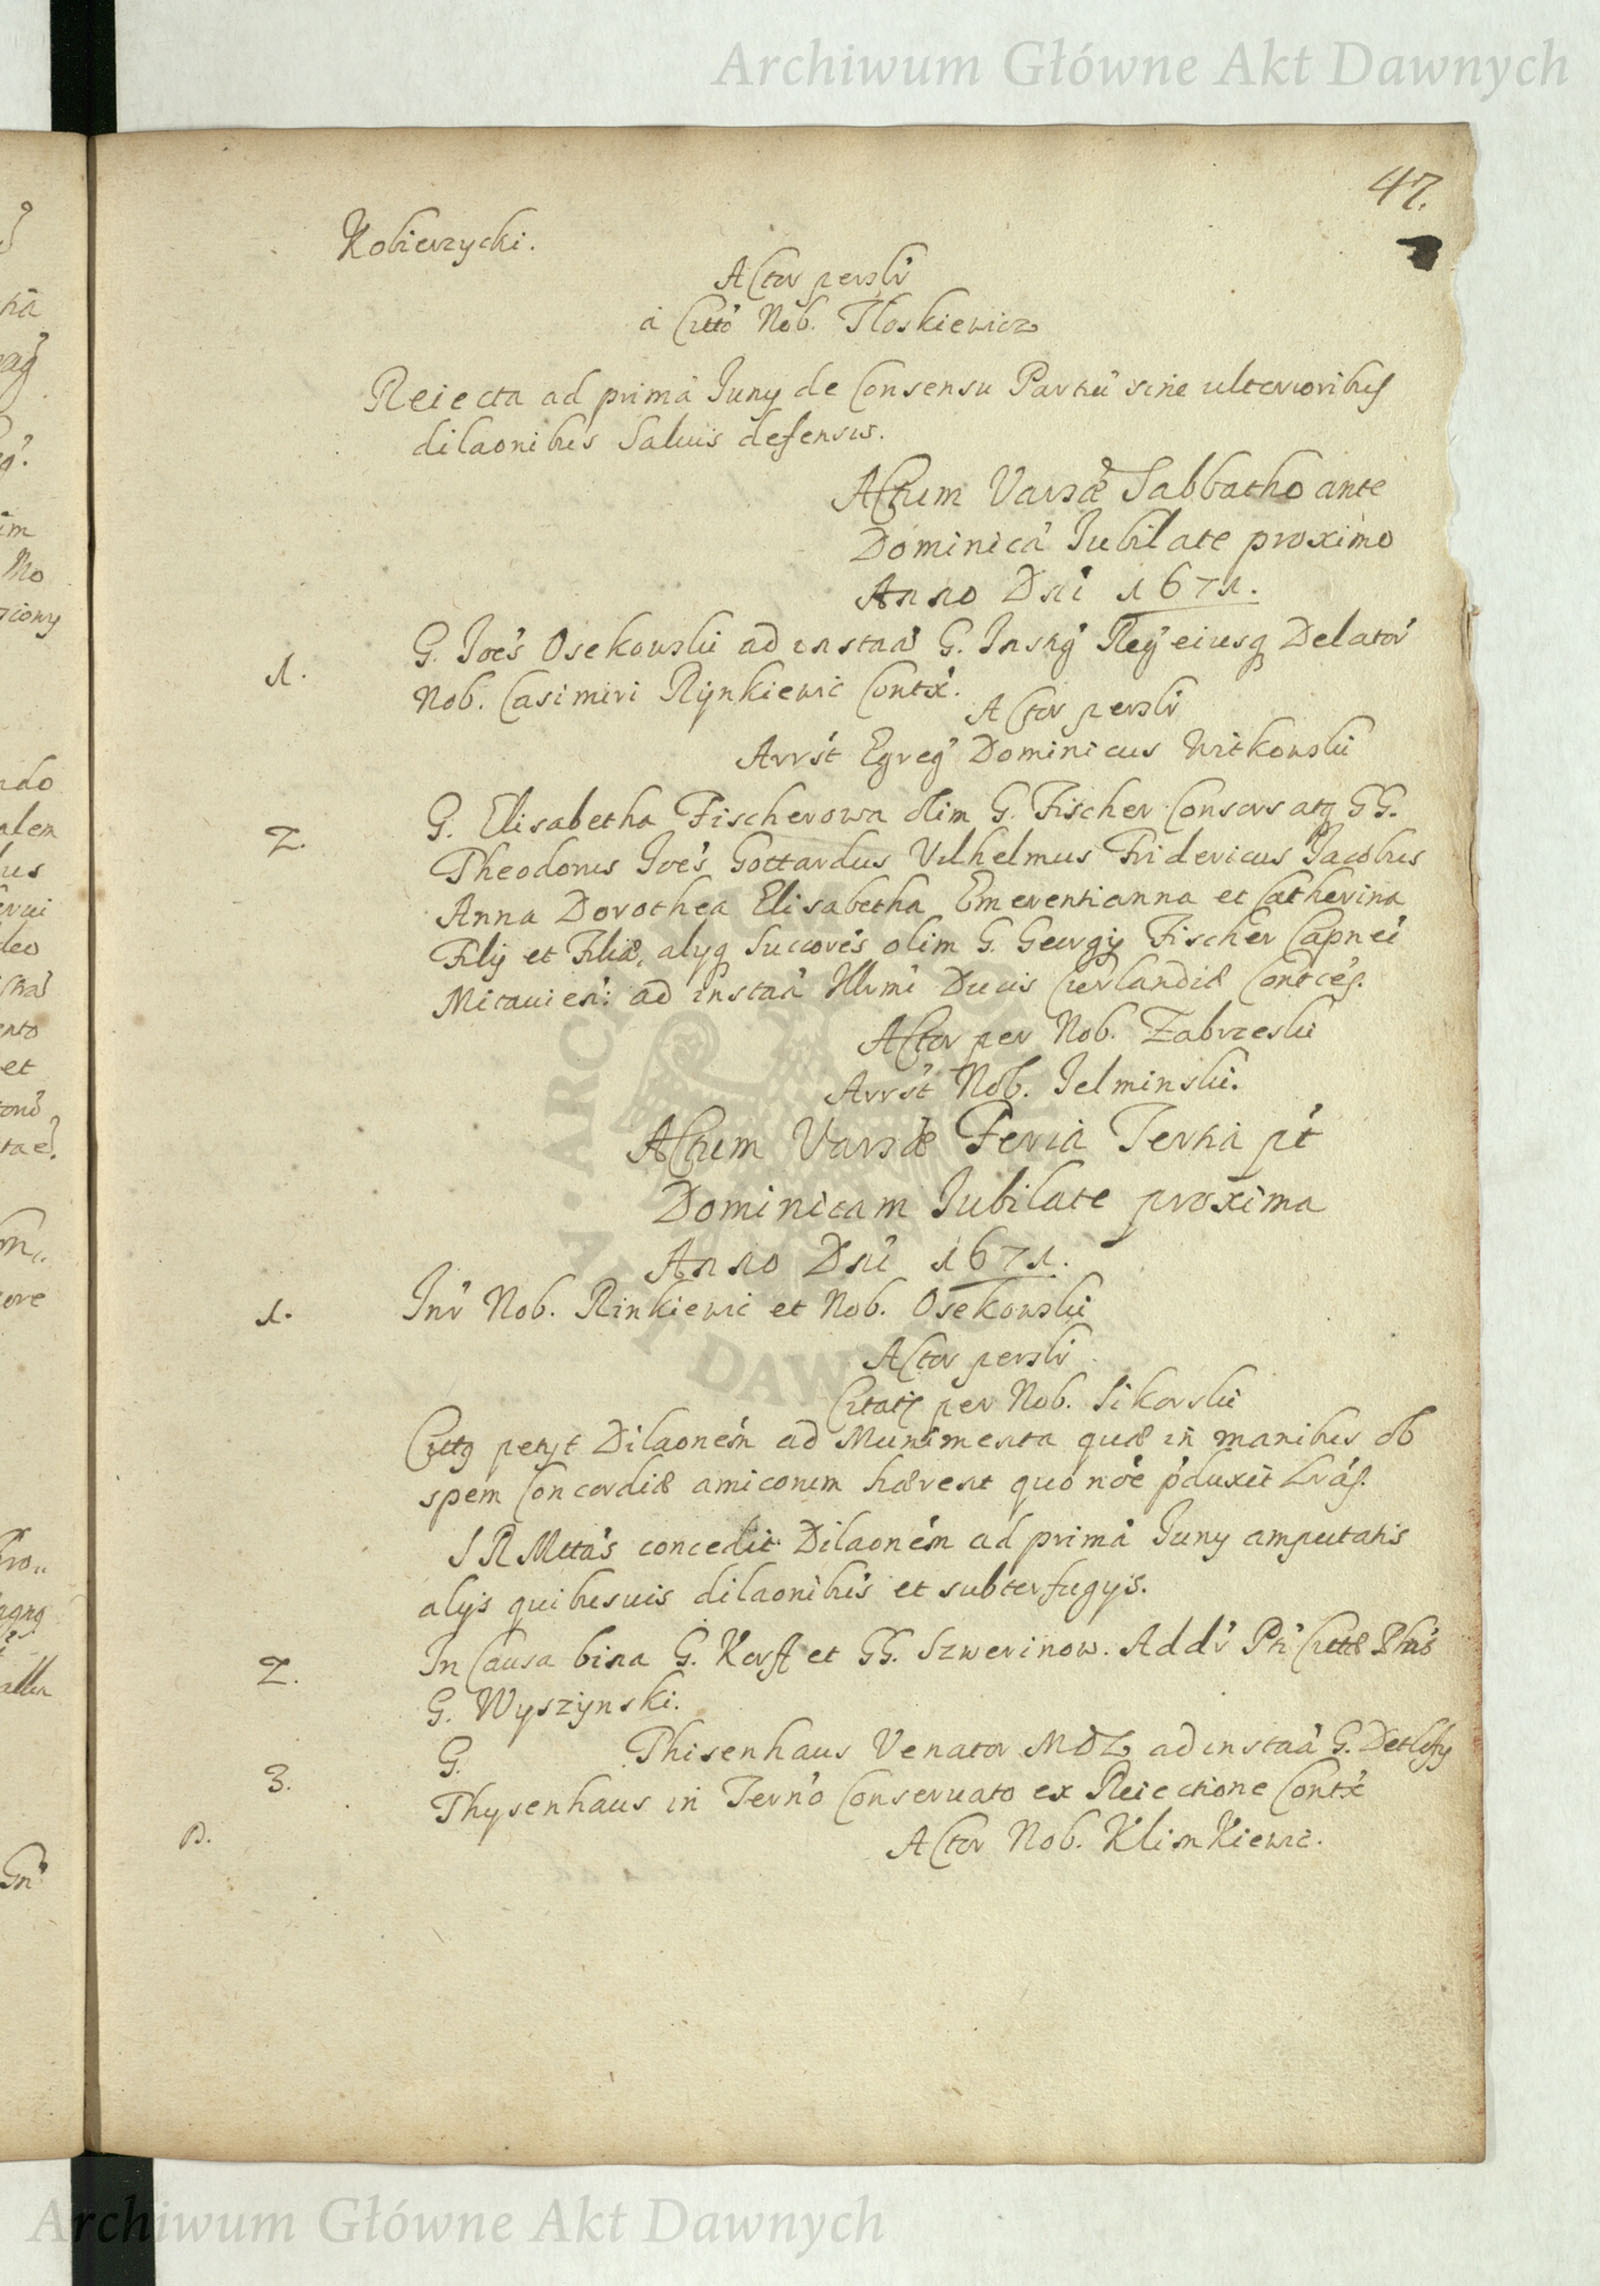 Archiwum Główne Akt Dawnych
47.
Kobierzycki.
Actor persłr
à Citto Nob. Tłoskiewicz
Reiecta ad primã Juny de Consensu Partiũ sine ulterioribus
dilaonibus Saluis defensis.
Actum Varsæ Sabbatho ante
Dominicã Jubilate proximo
Anno Dni 1671.
1.
G. Joes Osekowski ad instaã G. Instig Reg eiusq Delator
Nob. Casimiri Rynkiewic Contx.
Actor persłr
Arrst Egreg Dominicus Witkowski
2.
G. Elisabetha Fischerowa olim G. Fischer Consors atq GG.
Theodorus Joes Gottardus Vilhelmus Fridericus Jacobus
Anna Dorothea Elisabetha Emerentianna et Catherina
Filij et Filiæ, alyq Succores olim G. Georgij Fischer Capnei
Mitauien: ad instaã Illrmi Ducis Curlandiæ Contces.
Actor per Nob. Zabrzeski
Arrst Nob. Jelminski.
Actum Varsæ Feria Tertia pt
Dominicam Jubilate proxima
Anno Dni 1671.
1.
Inr Nob. Rinkiewic et Nob. Osekowski
Actor persłr
Citatq per Nob. Sikorski
Cittq petyt Dilaonem ad Munimenta quæ in manibus ob
spem Concordiæ amicorum hærent quo noe pduxit Lras.
S R Mttas concedit Dilaonem ad primã Juny amputatis
alijs quibusuis dilaonibus et subterfugijs.
2.
In Causa bina G. Korff et GG. Szwerinow. Addr Pti Cittæ Phis
G. Wyszynski.
3.
G. Thisenhaus Venator MDL ad instaã G. Detlefij
Thysenhaus in Termo Conseruato ex Reiectione Contx
p.
Actor Nob. Klimkiewic.
Archiwum Główne Akt Dawnych